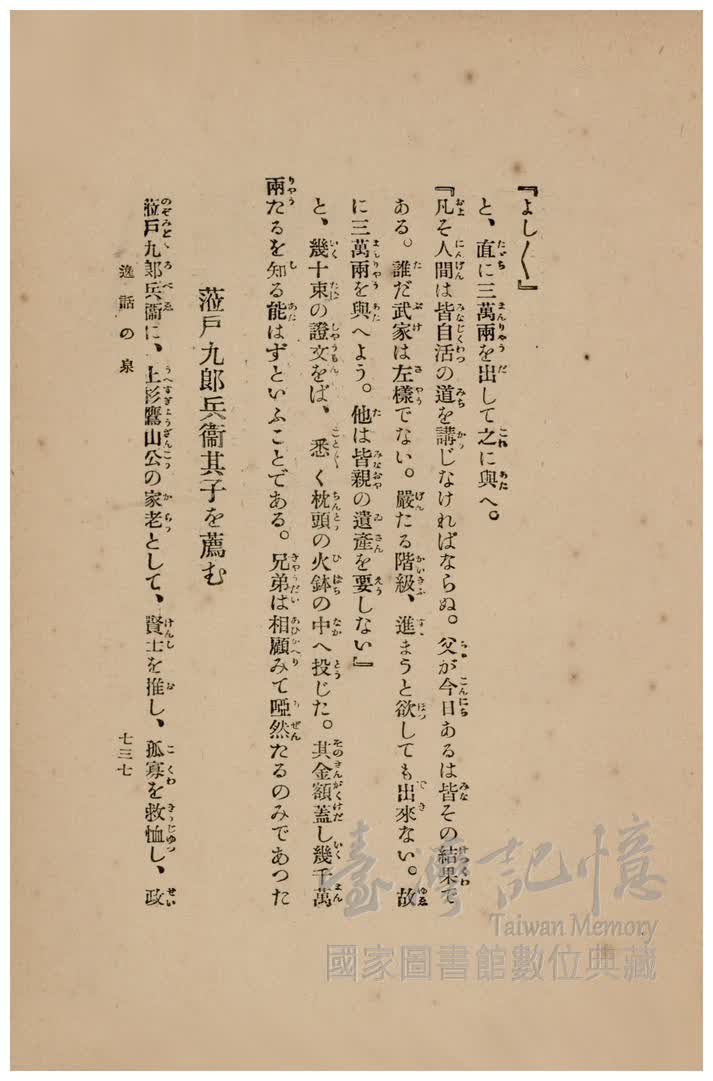 『よし〱』
と、直に三萬兩を出して之に與へ。
『凡そ人間は皆自活の道を講じなければならぬ。父が今日あるは皆その結果で
ある。誰だ武家は左樣でない。嚴たる階級、進まうと欲しても出來ない。故
に三萬兩を與へよう。他は皆親の遺產を要しない』
と、幾十束の證文をば、悉く枕頭の火鉢の中へ投じた。其金額蓋し幾千萬
兩たるを知る能はずといふことである。兄弟は相顧みて啞然たるのみであつた
蒞戸九郎兵衞其子を薦む
蒞戸九郎兵衞に、上杉鷹山公の家老として、賢士を推し、孤寡を救恤し、政
逸話の泉
七三七
臺灣記憶
Taiwan Memory
國家圖書館數位典藏